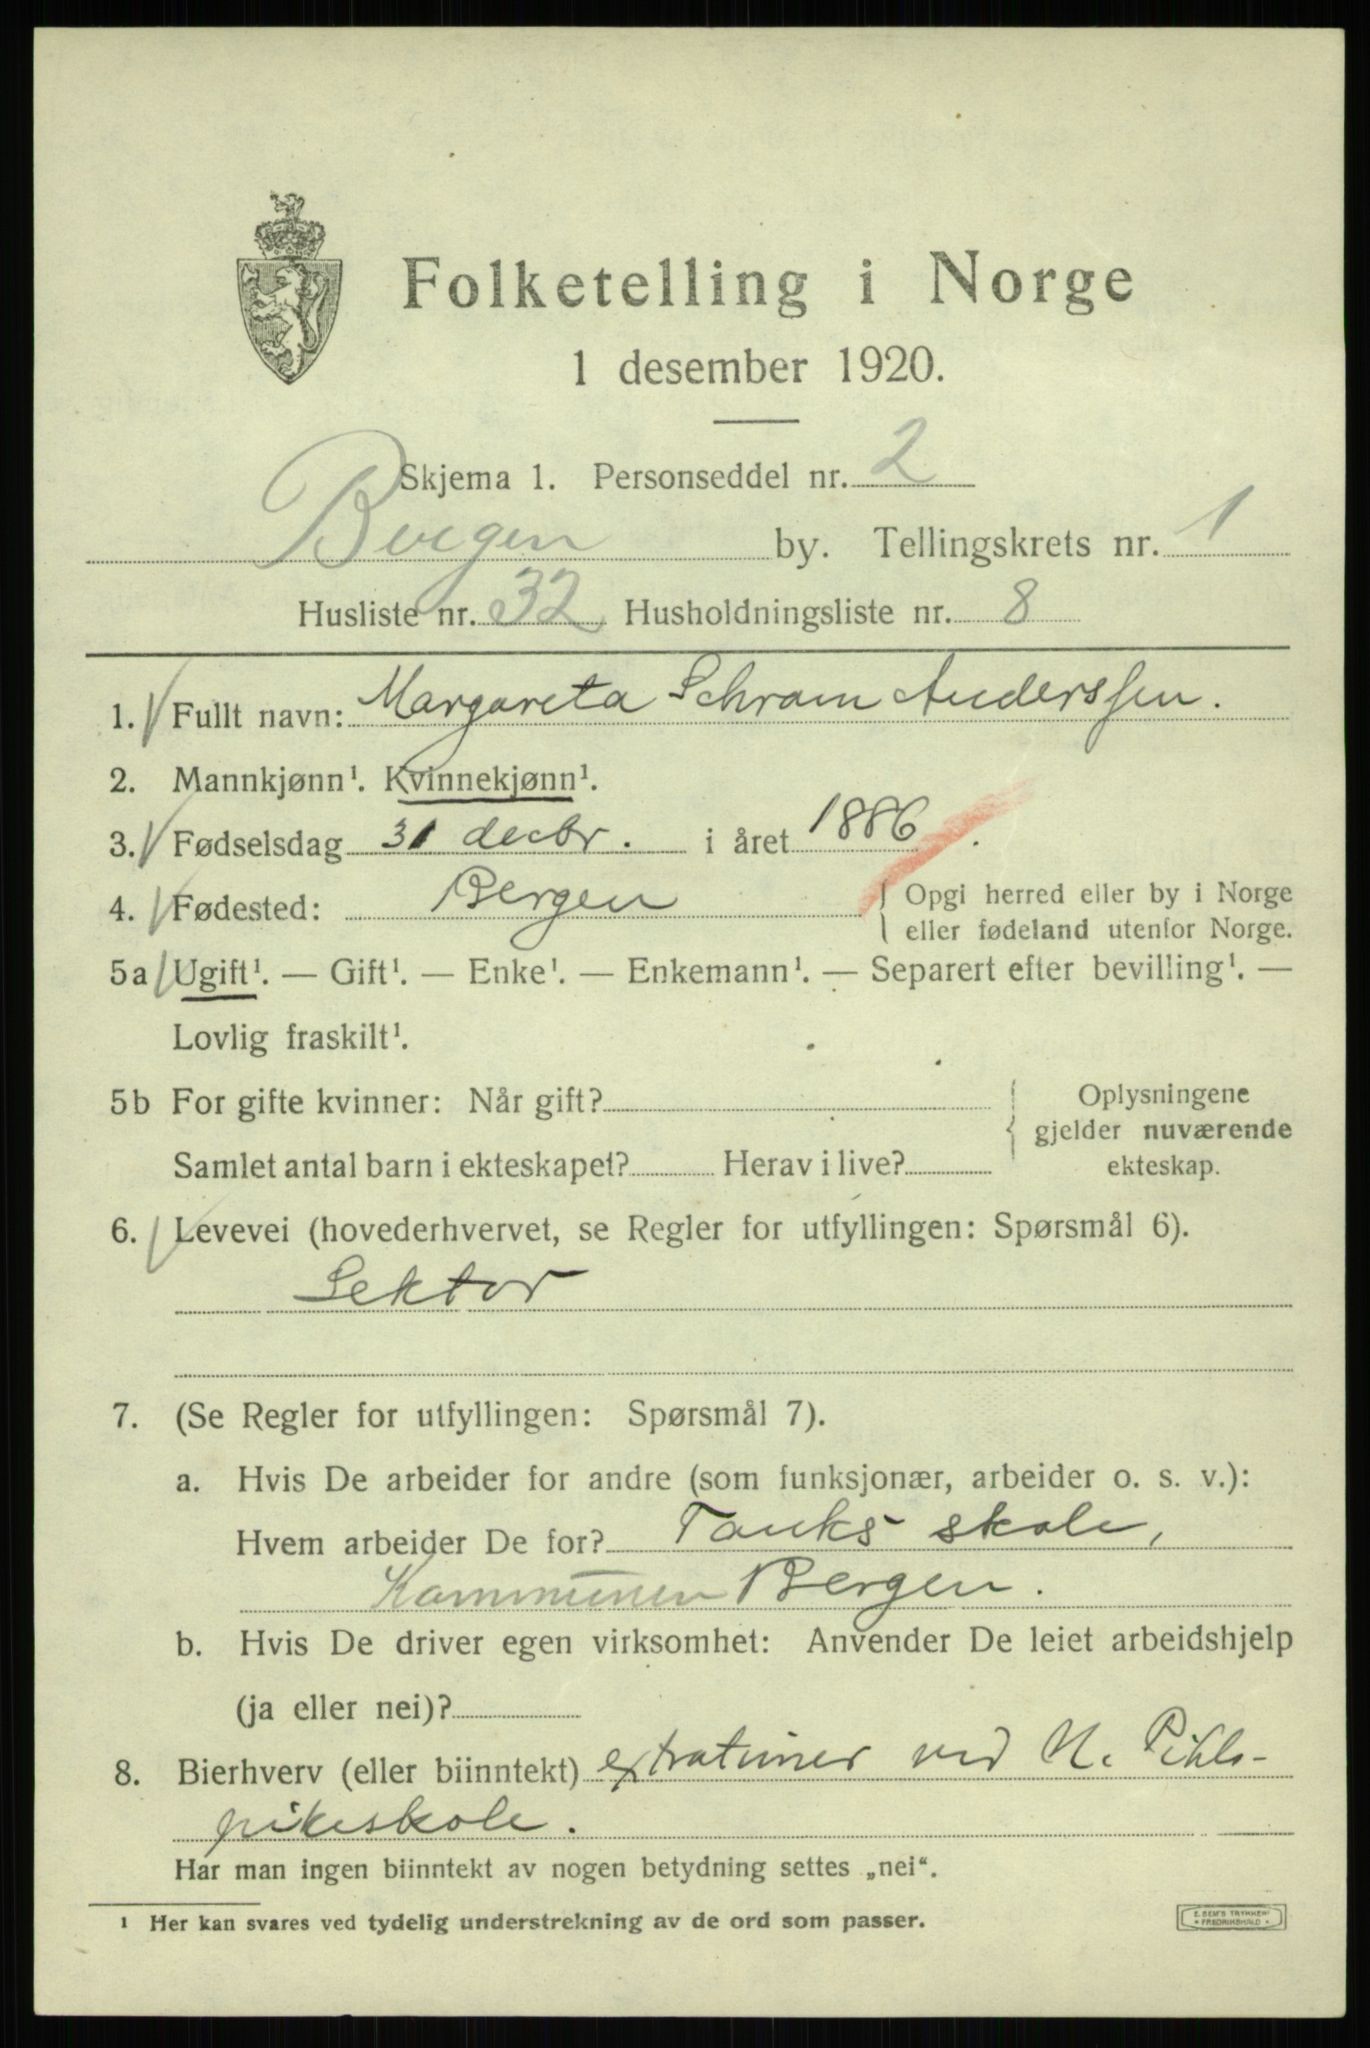 Folketelling i Norge
1 desember 1920.
Skjema 1. Personseddel nr. 2
Bergen by. Tellingskrets nr. 1
Husliste nr. 32 Husholdningsliste nr. 8
1. Fullt navn: Margareta Schram Anderssen.
2. Mannkjønn¹. Kvinnekjønn¹.
3. Fødselsdag 31 decbr. i året 1886.
4. Fødested: Bergen { Opgi herred eller by i Norge
eller fødeland utenfor Norge.
5a Ugift¹. — Gift¹. — Enke¹. — Enkemann¹. — Separert efter bevilling¹. —
Lovlig fraskilt¹.
5b For gifte kvinner: Når gift? { Oplysningene
gjelder nuværende
Samlet antal barn i ekteskapet? Herav i live? ekteskap.
6. Levevei (hovederhvervet, se Regler for utfyllingen: Spørsmål 6).
Lektor
7. (Se Regler for utfyllingen: Spørsmål 7).
a. Hvis De arbeider for andre (som funksjonær, arbeider o. s. v.):
Hvem arbeider De for? Tanks skole,
Kommunen Bergen.
b. Hvis De driver egen virksomhet: Anvender De leiet arbeidshjelp
(ja eller nei)?
8. Bierhverv (eller biinntekt) extratimer ved N. Pihls-
pikeskole.
Har man ingen biinntekt av nogen betydning settes „nei“.
¹ Her kan svares ved tydelig understrekning av de ord som passer.
E. SEM'S TRYKKERI
FREDRIKSHALD